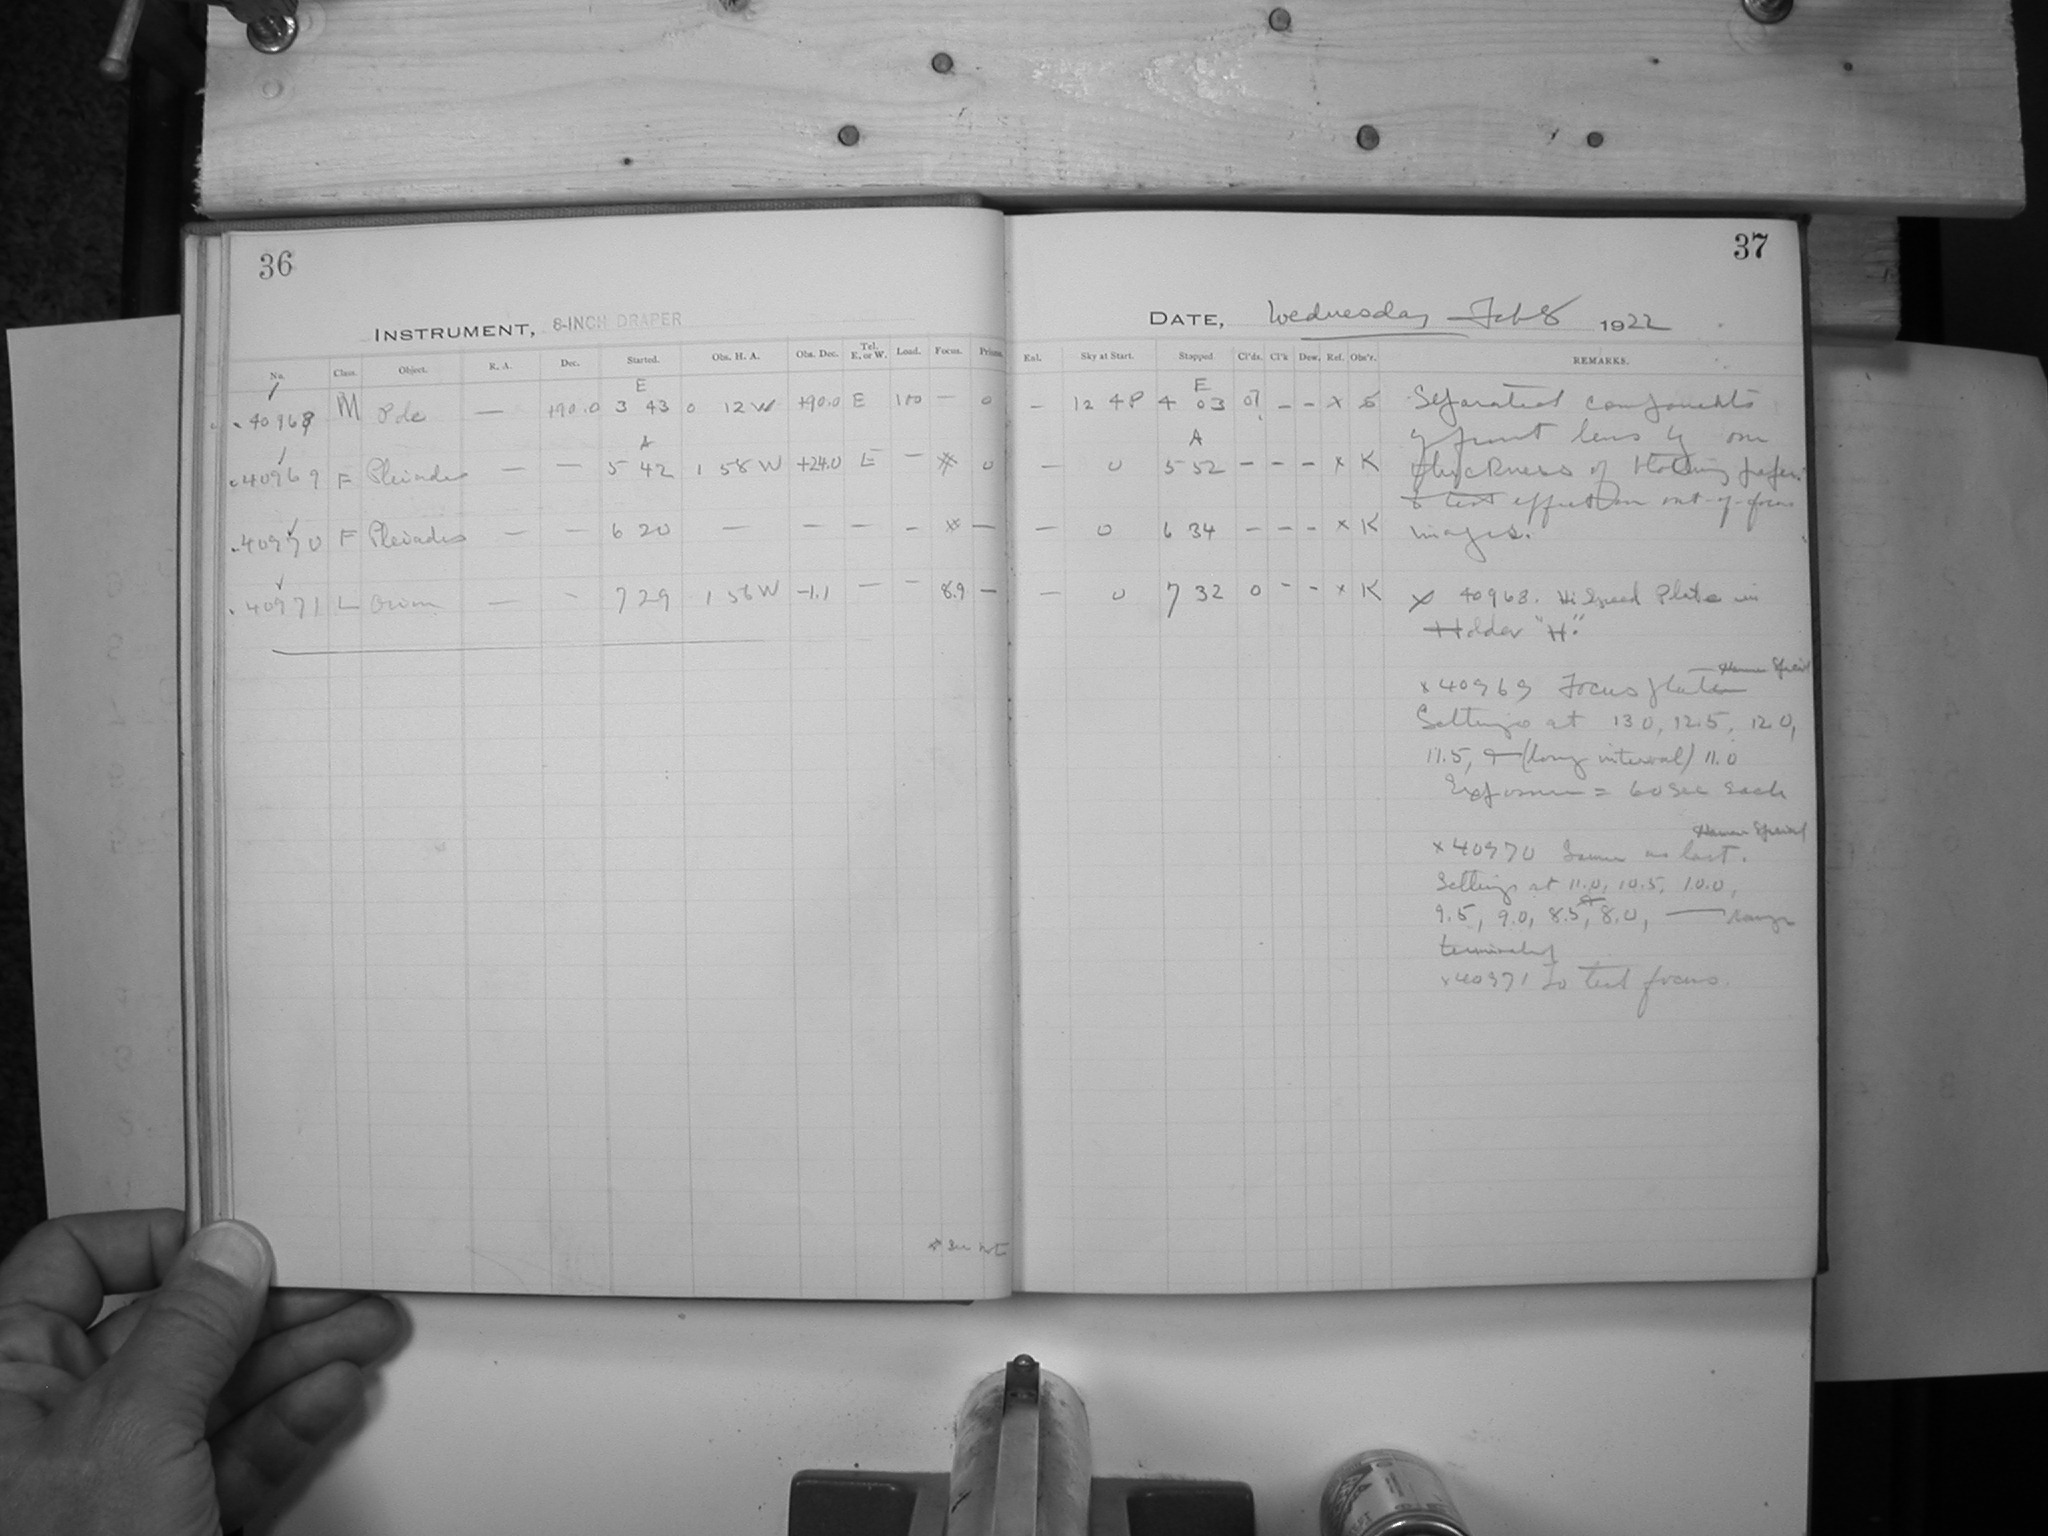 36
INSTRUMENT, 8-INCH DRAPER
No. Class. Object. R. A. Dec. Started. Obs. H. A. Obs. Dec. Tel. E. or W. Load. Focus. Prism.
E
40968 M Pole — +90.0 3 43 0 12 W +90.0 E 100 — 0
A
40969 F Pleiades — — 5 42 1 58 W +24.0 E — * 0
40970 F Pleiades — — 6 20 — — — - * —
40971 L Orion — - 7 29 1 56 W -1.1 — - 8.9 —
37
DATE, Wednesday Feb 8 1922
Ext. Sky at Start. Stopped. Cl'ds. Cl'k Dew. Ref. Obs'r. REMARKS.
E
— 12 48 4 03 0? - - x
A
— 0 5 52 - - - x K
— 0 6 34 - - - x K
— 0 7 32 0 - - x K
Separated components
of front lens by one
thickness of blotting paper
to test effect on out-of-focus
images.
x 40968. Hi Speed Plate in
Holder "H."
x 40969 Focus plate Hammer Special
Settings at 13.0, 12.5, 12.0,
11.5, & (long interval) 11.0
Exposure = 60 sec each
Hammer Special
x 40970 Same as last.
Settings at 11.0, 10.5, 10.0,
9.5, 9.0, 8.5, & 8.0, —
x 40971 To test focus.